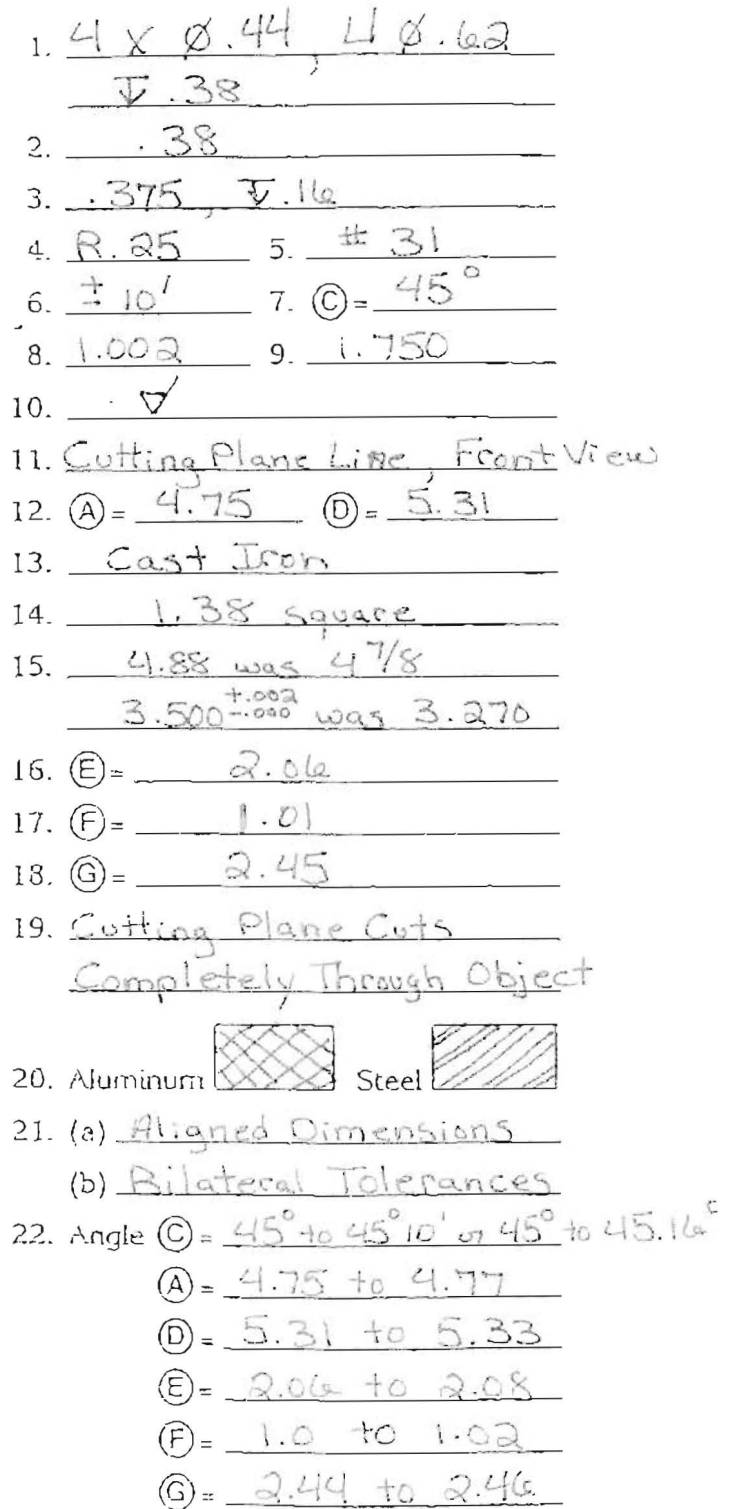 1. 4 X Ø.44, ⌴ Ø.62
↧ .38
2. .38
3. .375, ↧ .16
4. R.25 5. # 31
6. ± 10' 7. Ⓒ = 45°
8. 1.002 9. 1.750
10. ∀
11. Cutting Plane Line, Front View
12. Ⓐ = 4.75 Ⓓ = 5.31
13. Cast Iron
14. 1.38 square
15. 4.88 was 4 7/8
3.500 +.002 -.000 was 3.270
16. Ⓔ = 2.06
17. Ⓕ = 1.01
18. Ⓖ = 2.45
19. Cutting Plane Cuts
Completely Through Object
20. Aluminum Steel
21. (a) Aligned Dimensions
(b) Bilateral Tolerances
22. Angle Ⓒ = 45° to 45°10' or 45° to 45.16°
Ⓐ = 4.75 to 4.77
Ⓓ = 5.31 to 5.33
Ⓔ = 2.06 to 2.08
Ⓕ = 1.0 to 1.02
Ⓖ = 2.44 to 2.46